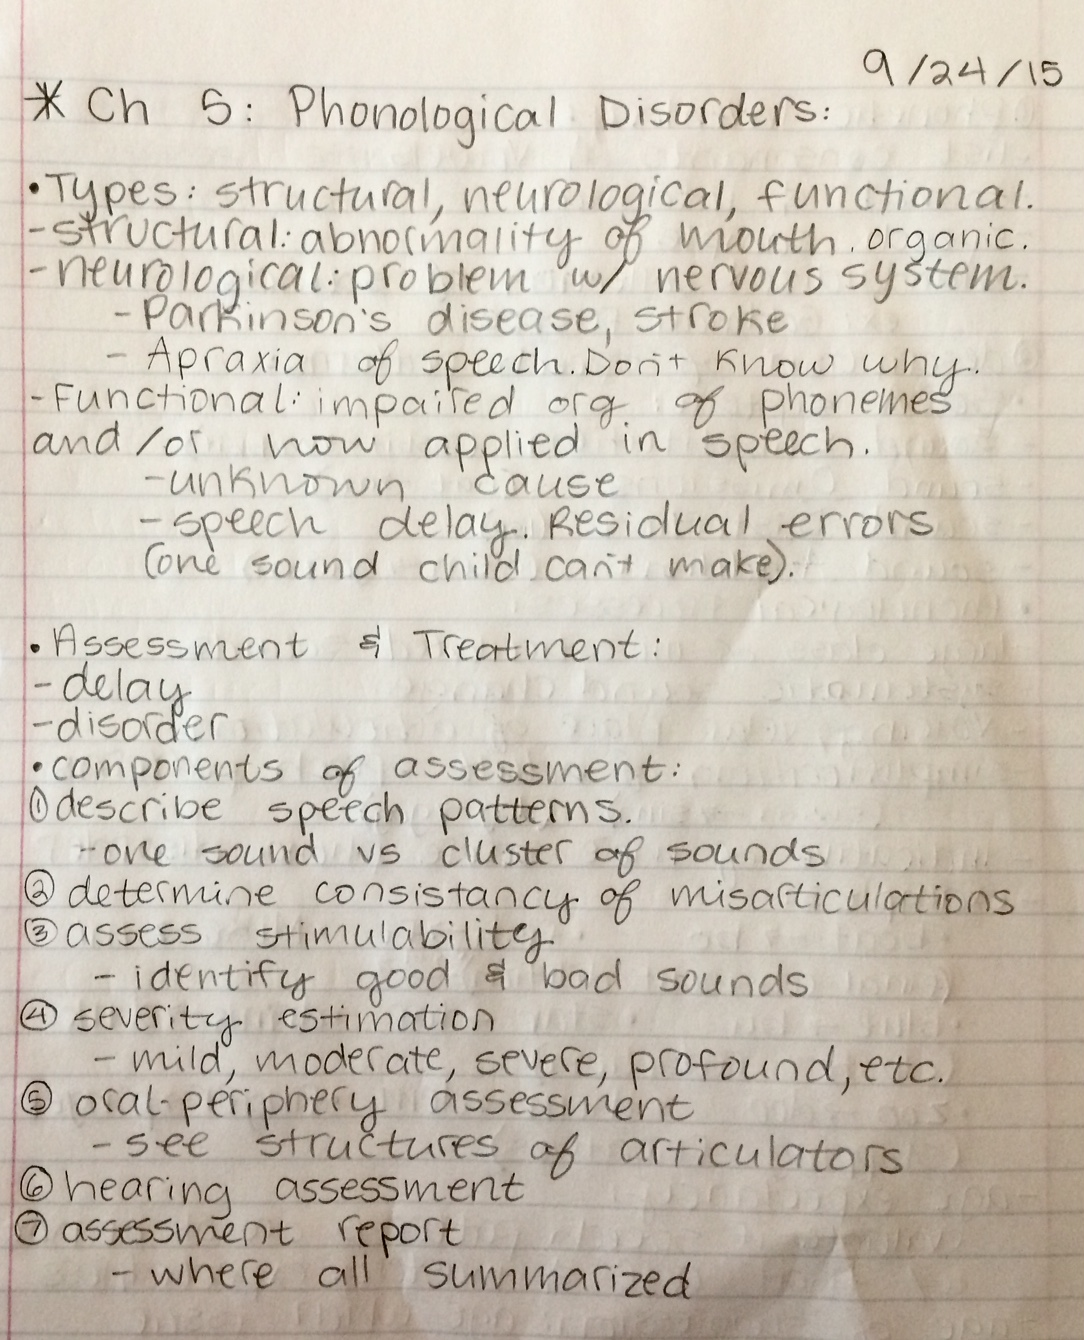 9/24/15
* Ch 5: Phonological Disorders:
• Types: structural, neurological, functional.
- structural: abnormality of mouth. organic.
- neurological: problem w/ nervous system.
- Parkinson's disease, stroke
- Apraxia of speech. Don't know why.
- Functional: impaired org of phonemes
and/or how applied in speech.
- unknown cause
- speech delay. Residual errors
(one sound child can't make).
• Assessment & Treatment:
- delay
- disorder
• components of assessment:
① describe speech patterns.
- one sound vs cluster of sounds
② determine consistancy of misarticulations
③ assess stimulability
- identify good & bad sounds
④ severity estimation
- mild, moderate, severe, profound, etc.
⑤ oral-periphery assessment
- see structures of articulators
⑥ hearing assessment
⑦ assessment report
- where all summarized